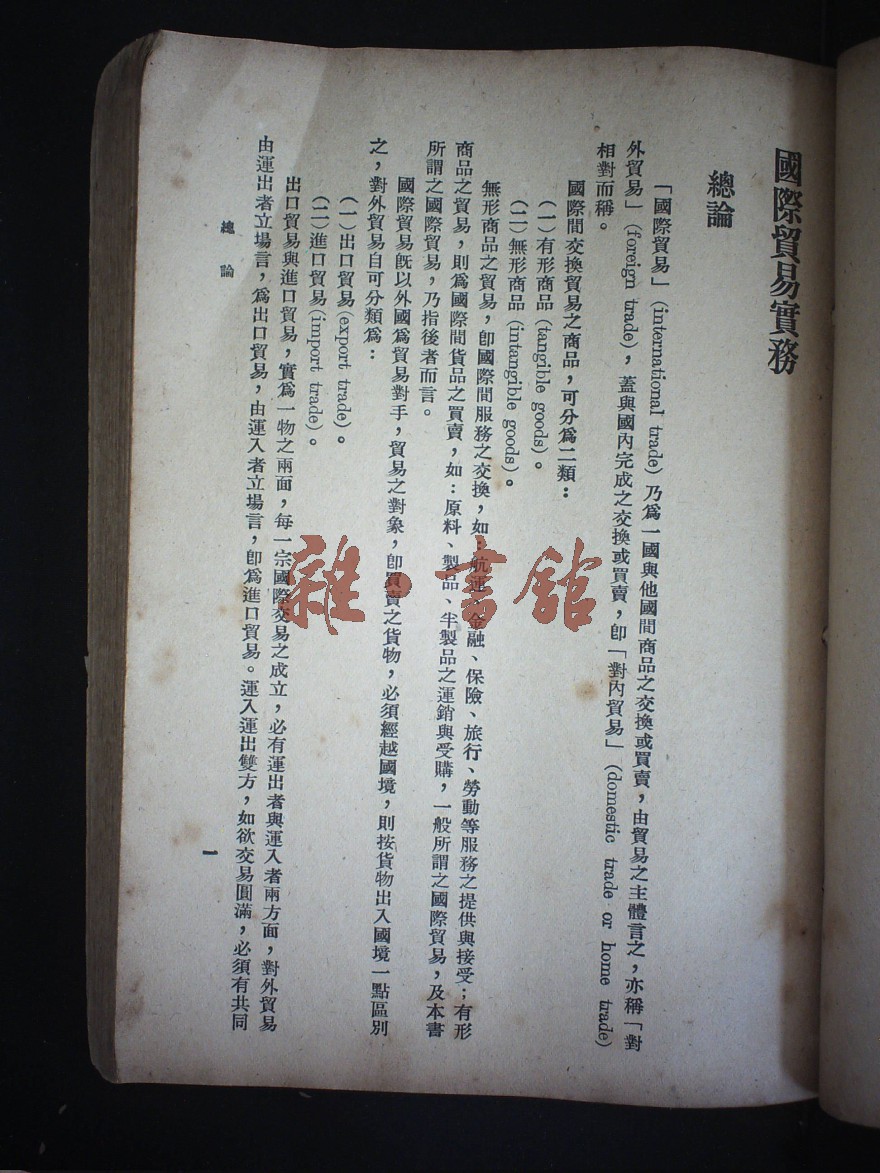 國際貿易實務
總論
「國際貿易」(international trade) 乃爲一國與他國間商品之交換或買賣，由貿易之主體言之，亦稱「對
外貿易」(foreign trade)，蓋與國內完成之交換或買賣，卽「對內貿易」(domestic trade or home trade)
相對而稱。
國際間交換貿易之商品，可分爲二類：
(一) 有形商品 (tangible goods)。
(二) 無形商品 (intangible goods)。
無形商品之貿易，卽國際間服務之交換，如：航運、金融、保險、旅行、勞動等服務之提供與接受；有形
商品之貿易，則爲國際間貨品之買賣，如：原料、製品、半製品之運銷與受購，一般所謂之國際貿易，及本書
所謂之國際貿易，乃指後者而言。
國際貿易旣以外國爲貿易對手，貿易之對象，卽買賣之貨物，必須經越國境，則按貨物出入國境一點區別
之，對外貿易自可分類爲：
(一) 出口貿易 (export trade)。
(二) 進口貿易 (import trade)。
出口貿易與進口貿易，實爲一物之兩面，每一宗國際交易之成立，必有運出者與運入者兩方面，對外貿易
由運出者立場言，爲出口貿易，由運入者立場言，卽爲進口貿易。運入運出雙方，如欲交易圓滿，必須有共同
總論
一
雜·書館